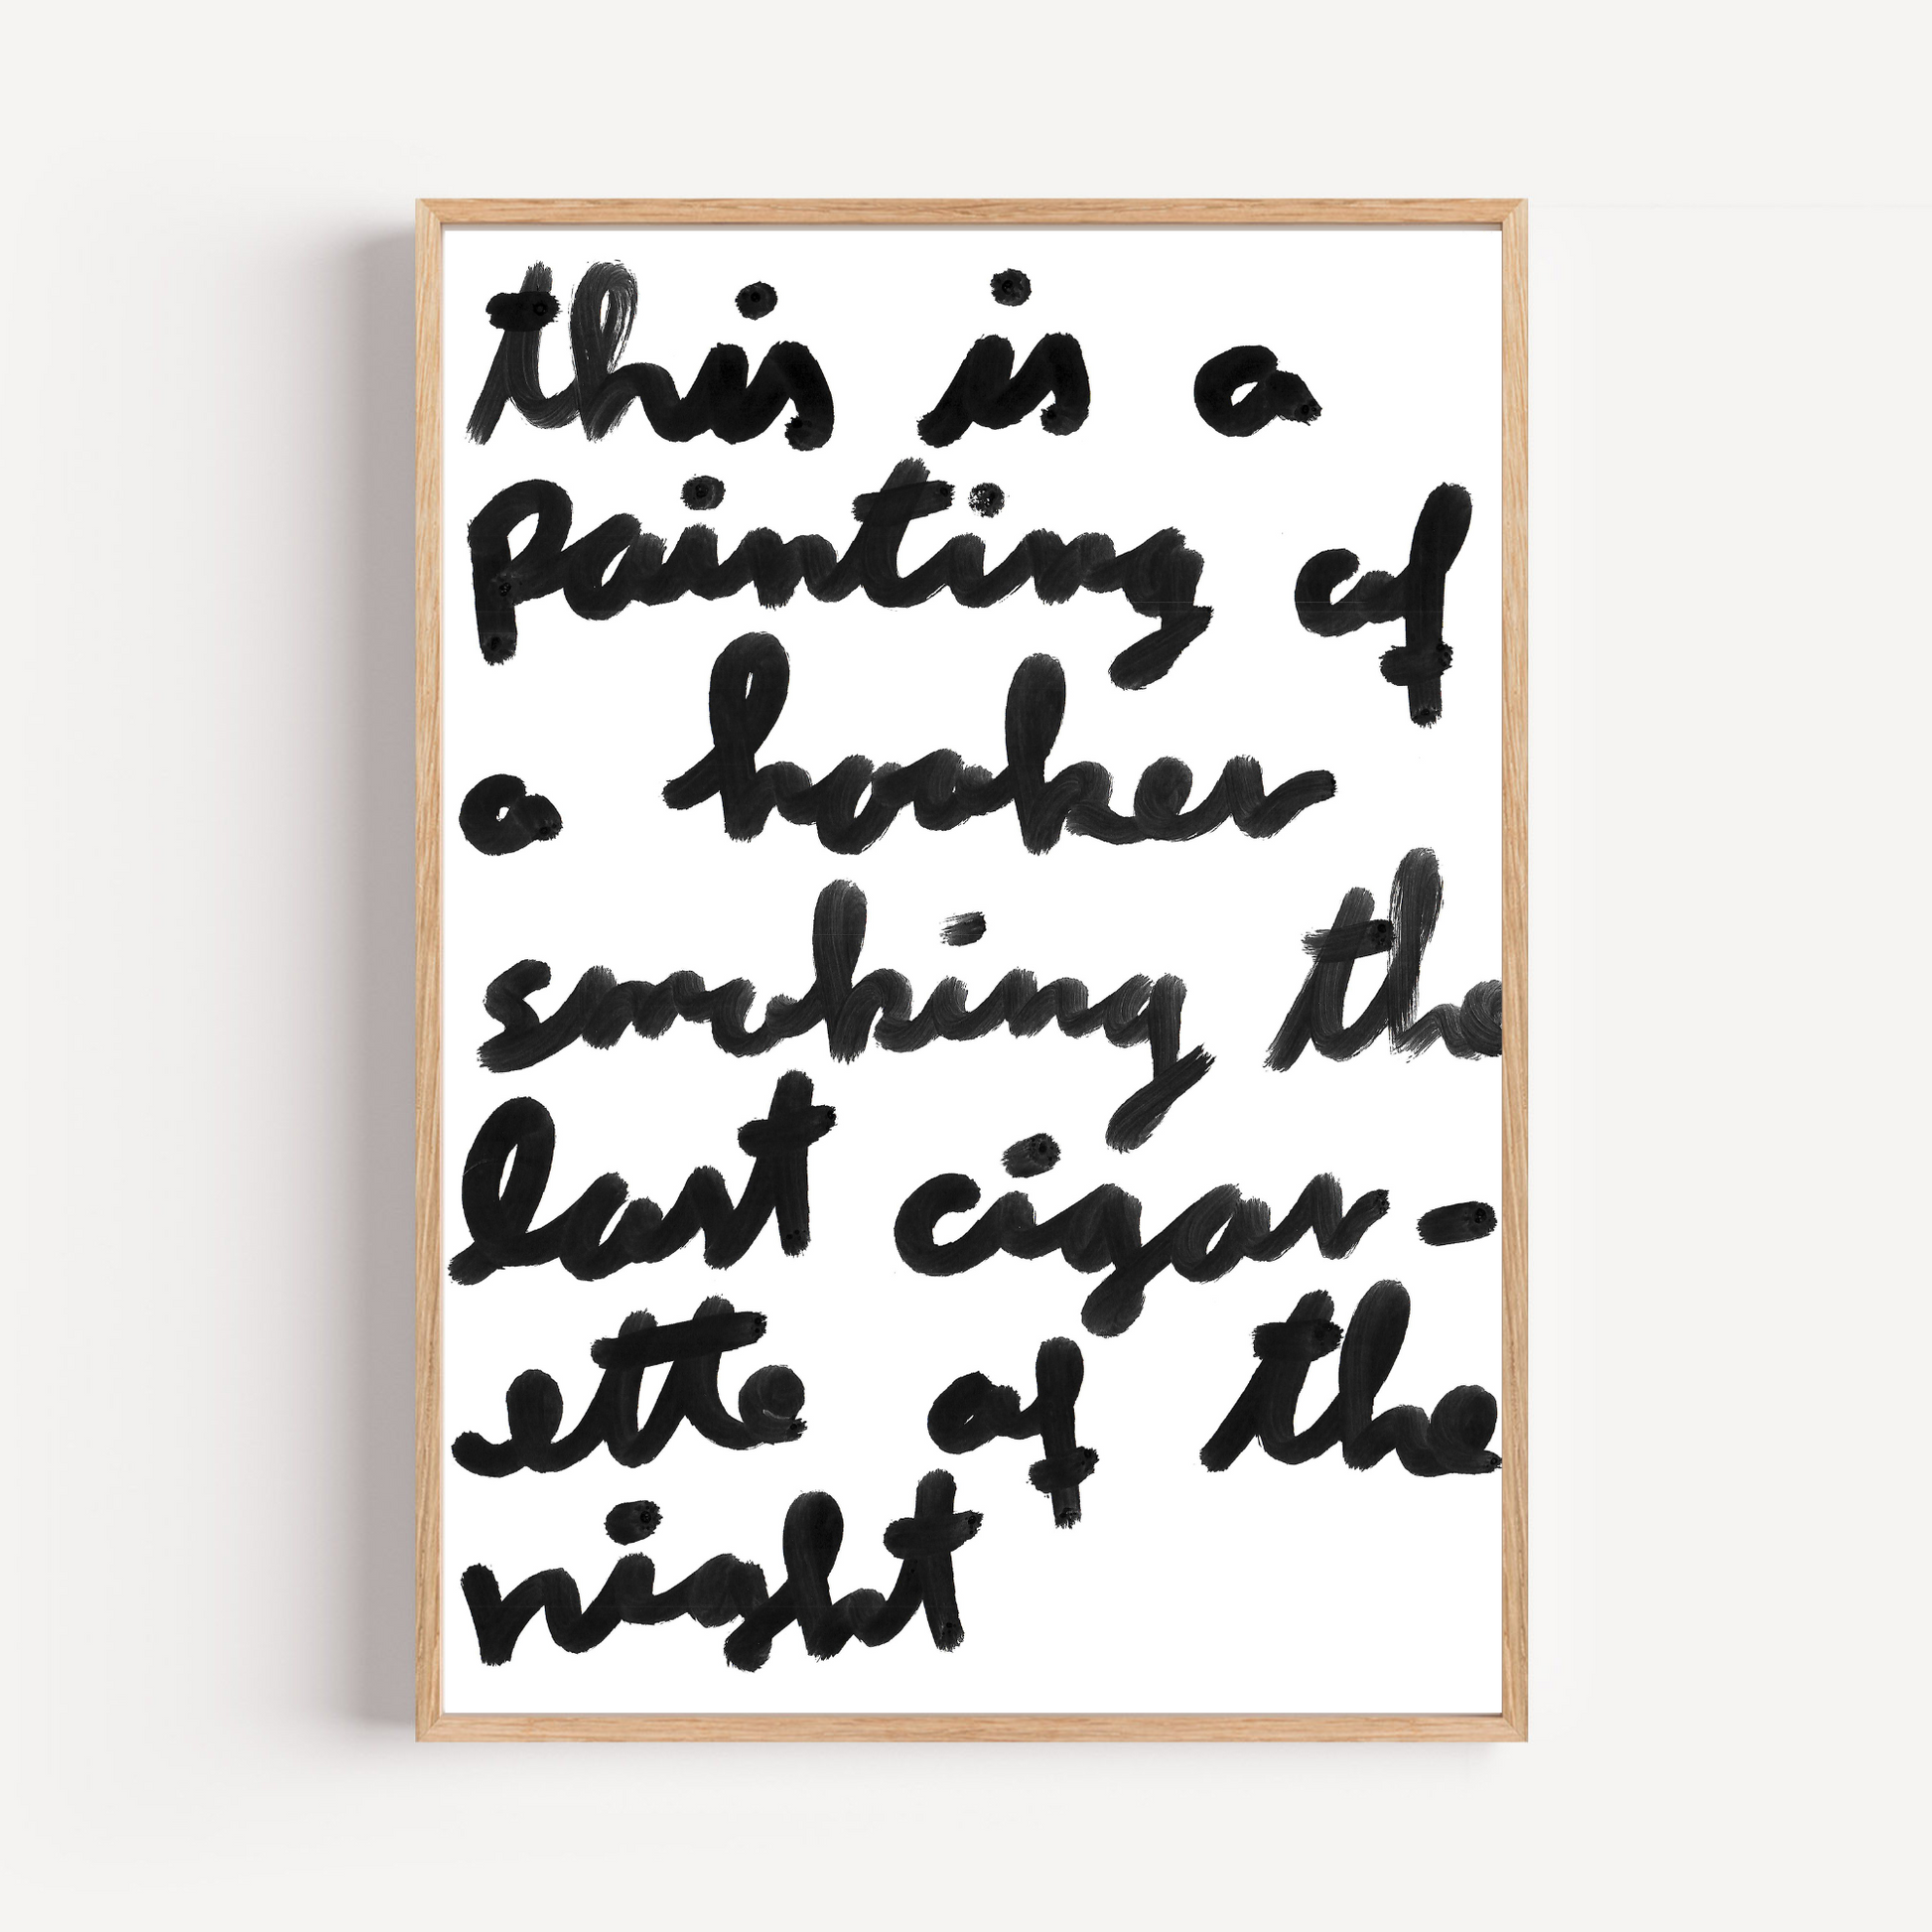 this is a
painting of
a hooker
smoking the
last cigar-
ette of the
night